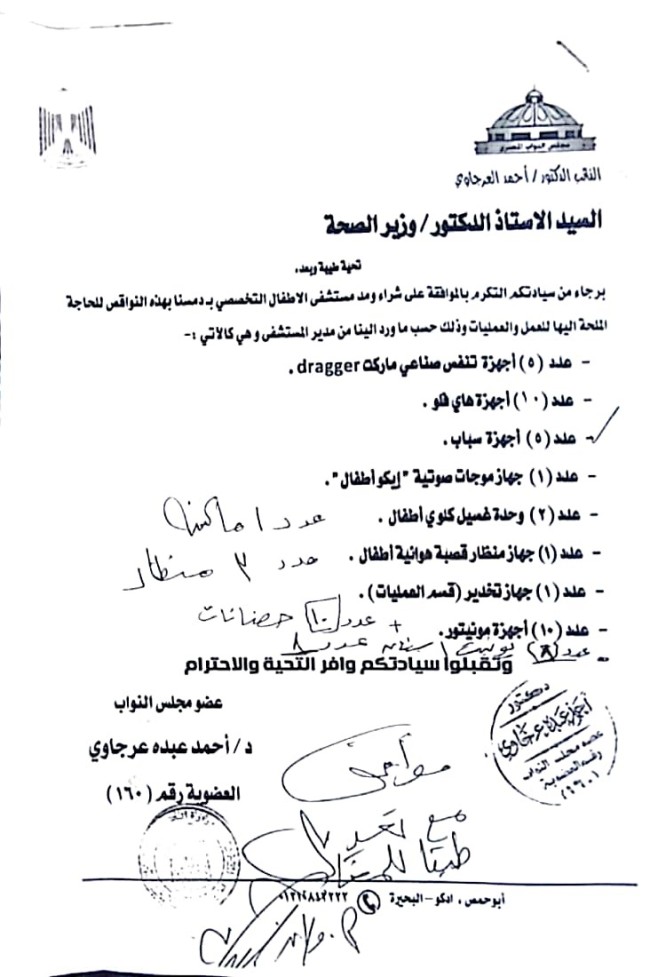 مجلس النواب المصري
النائب الدكتور/ أحمد العرجاوي
السيد الاستاذ الدكتور/ وزير الصحة
تحية طيبة وبعد،
برجاء من سيادتكم التكرم بالموافقة على شراء ومد مستشفى الاطفال التخصصي بـ دمسنا بهذه النواقص للحاجة
الملحة اليها للعمل والعمليات وذلك حسب ما ورد الينا من مدير المستشفى و هي كالآتي :-
- عدد (٥) أجهزة تنفس صناعي ماركت dragger .
- عدد (١٠) أجهزة هاي فلو .
- عدد (٥) أجهزة سباب .
- عدد (١) جهاز موجات صوتية "إيكو أطفال" .
- عدد (٢) وحدة غسيل كلوي أطفال . عدد ١ ماكينة
- عدد (١) جهاز منظار قصبة هوائية أطفال . عدد ٣ منظار
- عدد (١) جهاز تخدير (قسم العمليات) .
- عدد (١٠) أجهزة مونيتور . + عدد ١٠ حضانات
عدد (٨) يونيت اسنان عدد ٨
وتقبلوا سيادتكم وافر التحية والاحترام
عضو مجلس النواب
د/ أحمد عبده عرجاوي
العضوية رقم (١٦٠)
دكتور
أحمد عبده عرجاوي
عضو مجلس النواب
رقم العضوية
موافق
مع
طبقا للمتاح
أبو حمص ، ادكو - البحيرة